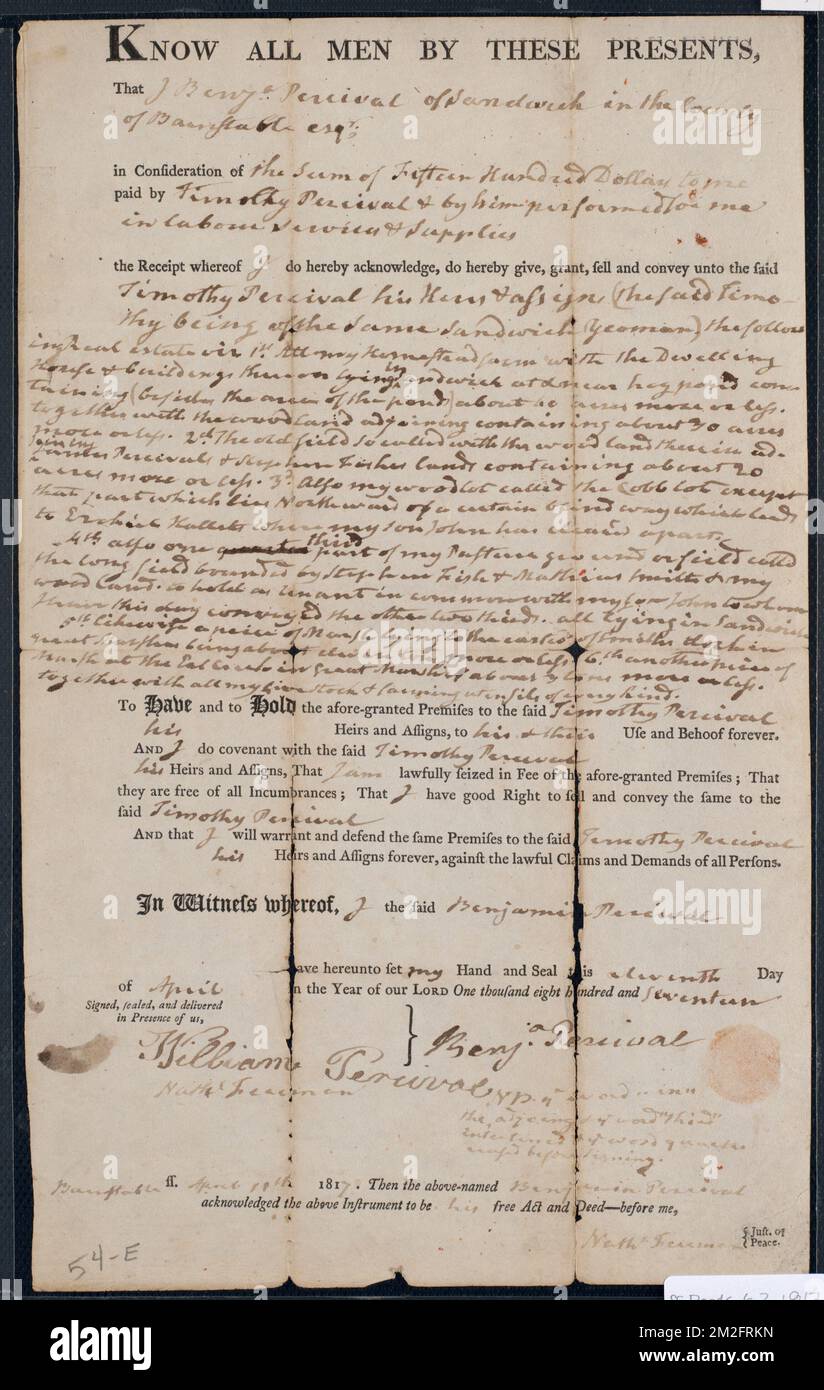 KNOW ALL MEN BY THESE PRESENTS,
That I Benja. Percival of Sandwich in the County
of Barnstable esqr.
in Consideration of the Sum of Fifteen Hundred Dollars to me
paid by Timothy Percival & by him performed for me
in labour Services & Supplies
the Receipt whereof I do hereby acknowledge, do hereby give, grant, sell and convey unto the said
Timothy Percival his Heirs & assigns (the said Timo-
thy being of the Same Sandwich Yeoman) the follow
ing real estate viz 1st. All my Homestead farm with the Dwelling
House & buildings thereon lying in Sandwich at & near
taining (besides the area of the pond) about acres more or less.
together with the woodland adjoining containing about 30 acres
more or less. 2d. The old field so called with the wood land therein ad-
joining James Percivals & Stephen Fishes lands containing about 20
acres more or less. 3d. Also my woodlot called the Cobb lot except
that part which lies Northward of a certain way which leads
to Ezekiel Halletts where my son John has cleared a part.
4th. also one quarter third part of my Pasture ground or field called
the long field bounded by Stephen Fish & Mathias Smith & my
wood land. to hold as tenant in common with my son John to whom
I have this day conveyed the other two thirds. all lying in Sandwich
5th. Likewise a peice of Marsh lying to the of Smiths in
great Marshes being about more or less 6th. another peice of
Marsh at the in great Marshes about more or less.
together with all my live stock & farming utensils of every kind.
To Have and to Hold the afore-granted Premises to the said Timothy Percival
his Heirs and Assigns, to his & their Use and Behoof forever.
AND I do covenant with the said Timothy Percival
his Heirs and Assigns, That I am lawfully seized in Fee of the afore-granted Premises; That
they are free of all Incumbrances; That I have good Right to sell and convey the same to the
said Timothy Percival
AND that I will warrant and defend the same Premises to the said Timothy Percival
his Heirs and Assigns forever, against the lawful Claims and Demands of all Persons.
In Witness whereof, I the said Benjamin Percival
have hereunto set my Hand and Seal this eleventh Day
of April in the Year of our LORD One thousand eight hundred and Seventeen
Signed, sealed, and delivered
in Presence of us,
William Percival } Benja. Percival
Nathl. Freeman
NB ye word "in"
the adjoining & ye word "third"
interlined & ye word quarter
erased before signing.
Barnstable ss. April 11th 1817. Then the above-named Benjamin Percival
acknowledged the above Instrument to be his free Act and Deed—before me,
Nathl. Freeman { Just. of
{ Peace.
54-E
alamy
Image ID: 2M2FRKN
www.alamy.com